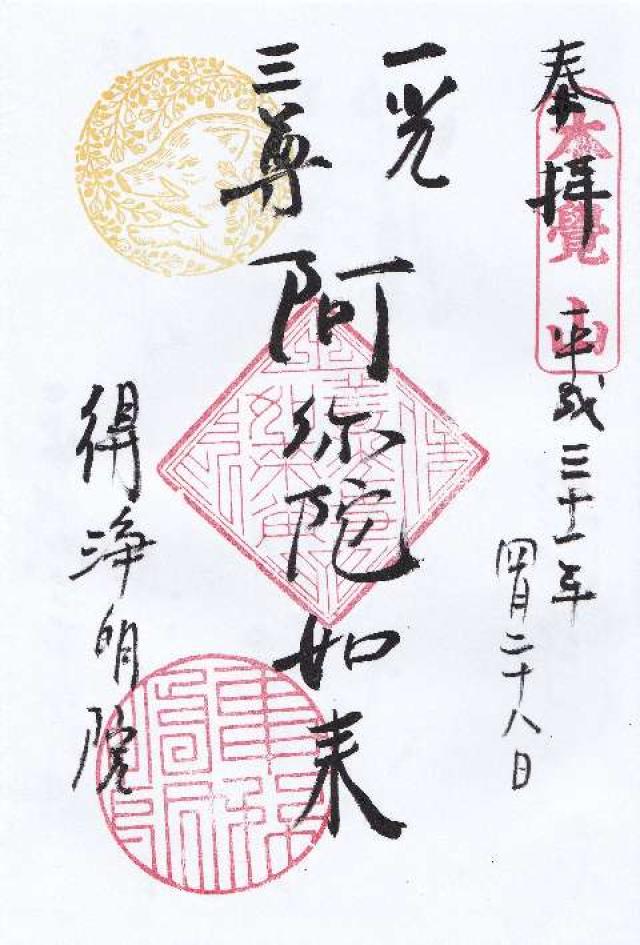 奉拝
大覺山
平成三十一年
四月二十八日
一光
三尊
阿弥陀如来
得浄明院